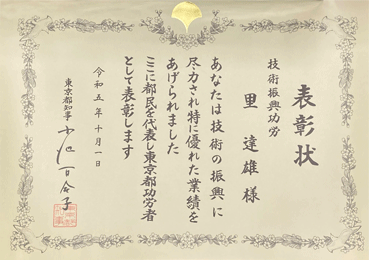 表彰状
技術振興功労
里達雄様
あなたは技術の振興に
尽力され特に優れた業績を
あげられました
ここに都民を代表し東京都功労者
として表彰します
令和五年十月一日
東京都知事 小池百合子